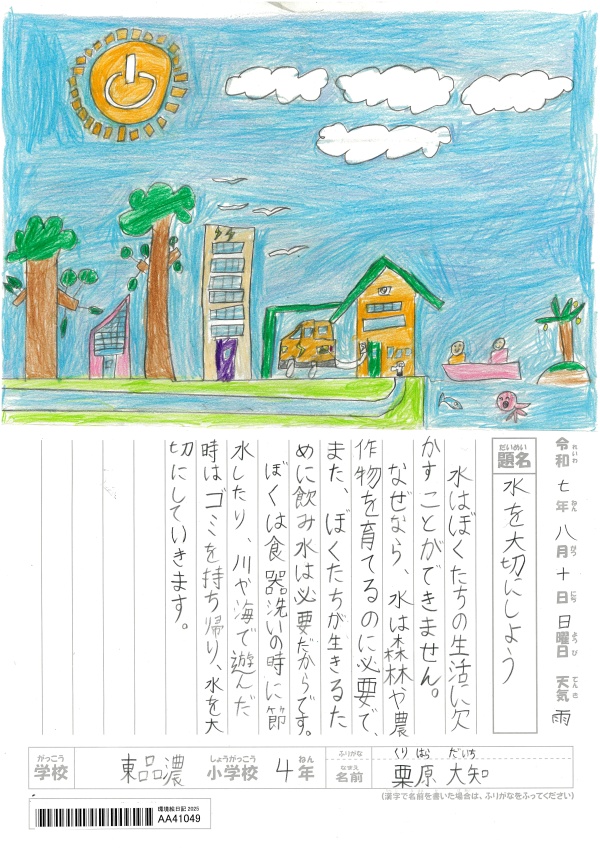 令和七年八月十日日曜日 天気雨
れいわ ねん がつ にち ようび てんき
だいめい
題名 水を大切にしよう
水はぼくたちの生活に欠
かすことができません。
なぜなら、水は森林や農
作物を育てるのに必要で、
また、ぼくたちが生きるた
めに飲み水は必要だからです。
ぼくは食器洗いの時に節
水したり、川や海で遊んだ
時はゴミを持ち帰り、水を大
切にしていきます。
がっこう しょうがっこう ねん
学校 東品濃 小学校 4年
ふりがな くりはら だいち
なまえ
名前 栗原 大知
(漢字で名前を書いた場合は、ふりがなをふってください)
環境絵日記 2025
AA41049